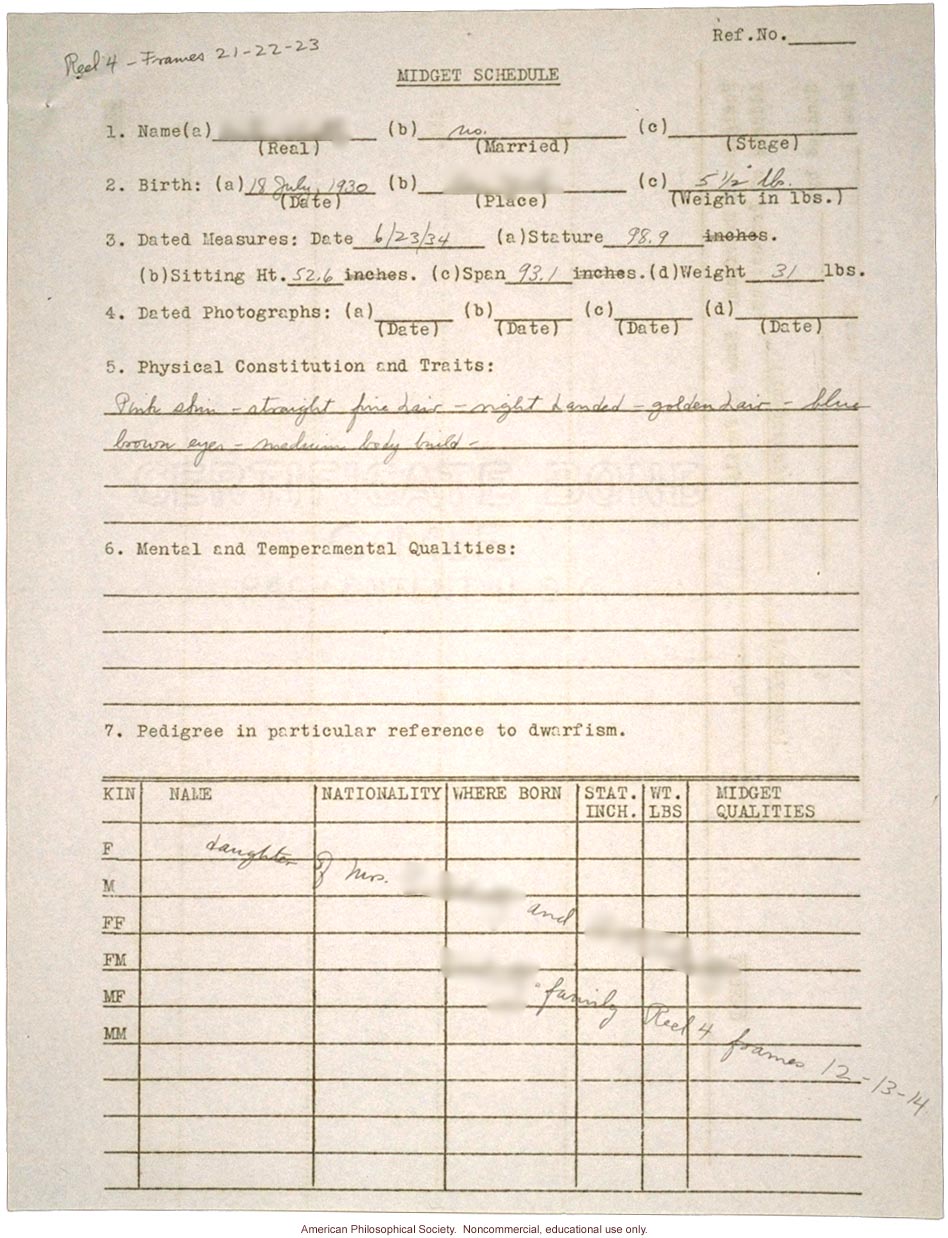 Reel 4 - Frames 21-22-23
Ref.No.
MIDGET SCHEDULE
1. Name(a) (b) no. (c)
(Real) (Married) (Stage)
2. Birth: (a) 18 July, 1930 (b) (c) 5 1/2 lbs.
(Date) (Place) (Weight in lbs.)
3. Dated Measures: Date 6/23/34 (a)Stature 98.9 inches.
(b)Sitting Ht. 52.6 inches. (c)Span 93.1 inches. (d)Weight 31 lbs.
4. Dated Photographs: (a) (b) (c) (d)
(Date) (Date) (Date) (Date)
5. Physical Constitution and Traits:
Pink skin - straight fine hair - right handed - golden hair - blue
brown eyes - medium body build -
6. Mental and Temperamental Qualities:
7. Pedigree in particular reference to dwarfism.
KIN NAME NATIONALITY WHERE BORN STAT. INCH. WT. LBS MIDGET QUALITIES
F
daughter of Mrs.
M
and
FF
FM
MF
"family Reel 4 frames 12-13-14
MM
American Philosophical Society. Noncommercial, educational use only.